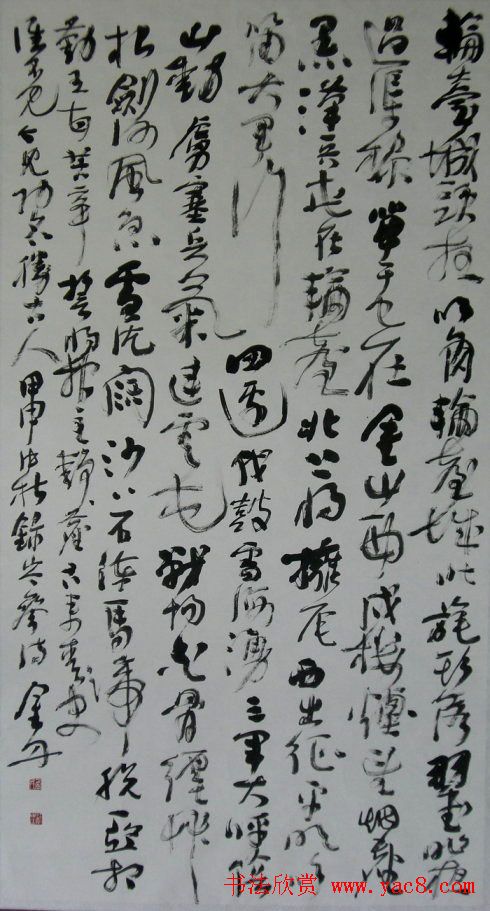 輪臺城頭夜吹角輪臺城北旄頭落羽書昨夜
過渠黎單于已在金山西戍樓望煙塵
黑漢兵屯在輪臺北上將擁旄西出征平明吹
笛大軍行四邊伐鼓雪海湧三軍大呼陰
山動虜塞兵氣連雲屯戰場白骨纏草
根劍河風急雪片闊沙口石凍馬蹄脫亞相
勤王甘苦辛誓將報主靜邊塵古來青史
誰不見今見功名勝古人甲申中秋錄岑參詩金丹
书法欣赏 www.yac8.com